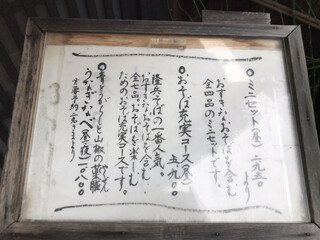 ◎ミニセット(昼)二九五〇より
おすきなおそばを含む
全四品のミニセットです。
◎おそば充実コース(昼)
五九〇〇
隆兵そばの一番人気。
おすきなおそばを含む
全七品。おそばを楽しむ
ためのおそば充実コースです。
と山椒の薬膳
うどん
なべ(昼・夜)一〇八〇〇
予約二名さまより